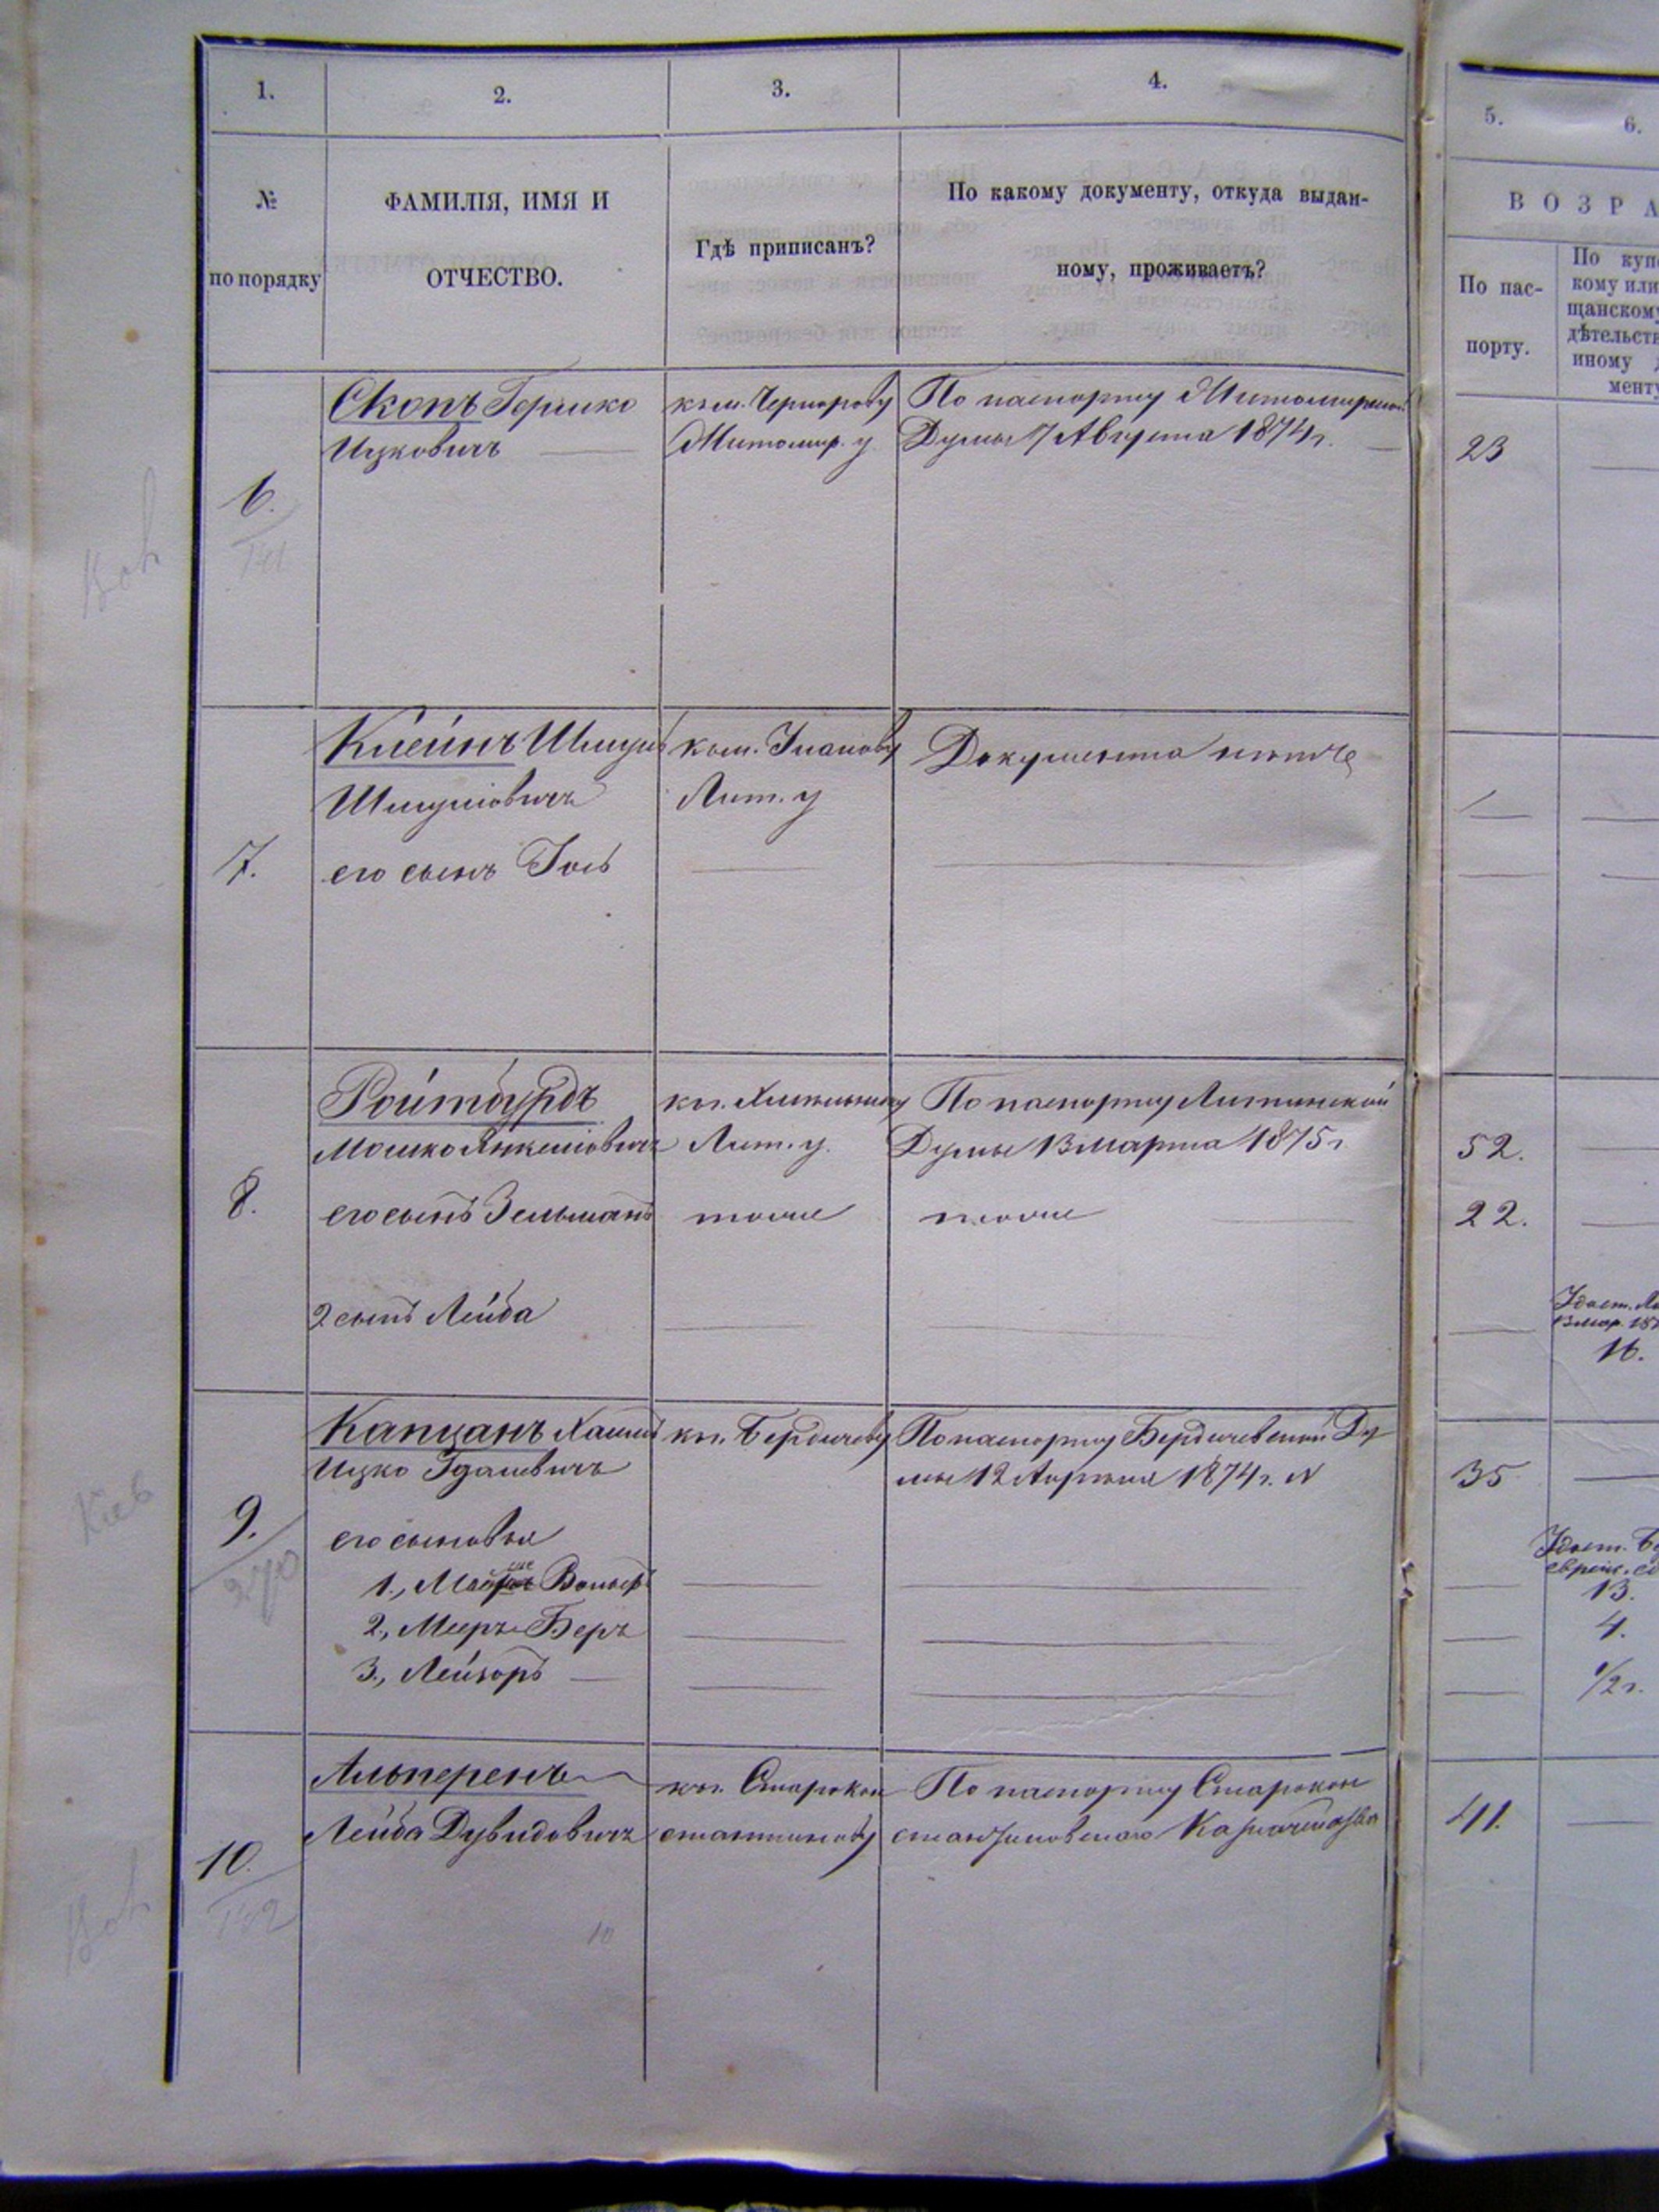 1.
2.
3.
4.
5.
6.
№
по порядку
ФАМИЛІЯ, ИМЯ И
ОТЧЕСТВО.
Гдѣ приписанъ?
По какому документу, откуда выдан-
ному, проживаетъ?
ВОЗРА
По пас-
порту.
По куп
кому или
щанскому
дѣтельств
иному
менту
6.
Скопъ Гершко
Ицковичъ
къ м. Чернорову
Житомир. у
По паспорту Житомирской
Думы 7 Августа 1874 г.
23
7.
Клейнъ Шмуль
Шмулiовичъ
его сынъ Iось
къ м. Уланову
Лит. у
Документа нѣтъ
8.
Ройтбурдъ
Мошко Янкелiовичъ
его сынъ Зельманъ
2 сынъ Лейба
къ г. Хмѣльнику
Лит. у.
тоже
По паспорту Литинской
Думы 13 марта 1875 г
тоже
52.
22.
16.
9.
270
Капцанъ Хаимъ
Ицко Гдалевичъ
его сыновья
1., Вольфъ
2., Мееръ Беръ
3., Лейзоръ
къ г. Бердичеву
По паспорту Бердичевской Ду
мы 12 Апрѣля 1874 г. №
35
13.
4.
1/2 г.
10.
Альперенъ
Лейба Дувидовичъ
къ г. Старокон
стантинову
По паспорту Старокон
стантиновскаго Казначейства
41.
10
Кiев